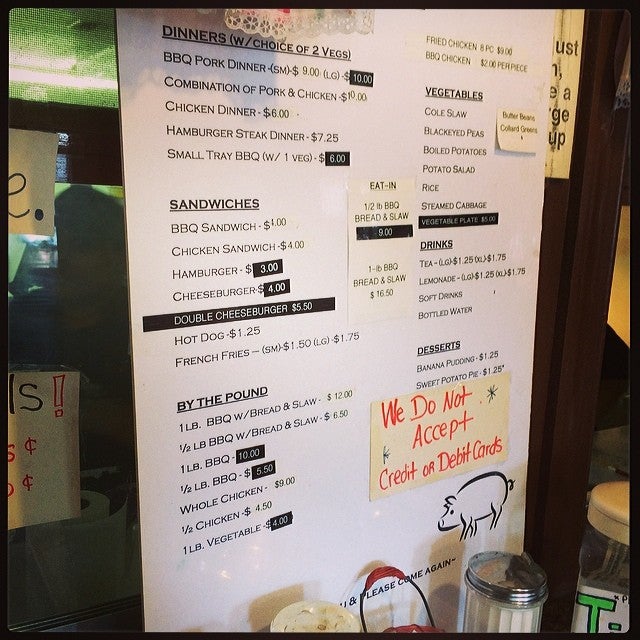 DINNERS (W/CHOICE OF 2 VEGS)
BBQ PORK DINNER-(SM)-$ 9.00 (LG)-$ 10.00
COMBINATION OF PORK & CHICKEN-$10.00
CHICKEN DINNER-$6.00
HAMBURGER STEAK DINNER-$7.25
SMALL TRAY BBQ (W/ 1 VEG)-$ 6.00
SANDWICHES
BBQ SANDWICH-$4.00
CHICKEN SANDWICH-$4.00
HAMBURGER-$ 3.00
CHEESEBURGER-$ 4.00
DOUBLE CHEESEBURGER $5.50
HOT DOG-$1.25
FRENCH FRIES – (SM)-$1.50 (LG)-$1.75
BY THE POUND
1LB. BBQ W/BREAD & SLAW- $ 12.00
1/2 LB BBQ W/BREAD & SLAW- $ 6.50
1LB. BBQ- 10.00
1/2 LB. BBQ-$ 5.50
WHOLE CHICKEN- $9.00
1/2 CHICKEN-$ 4.50
1LB. VEGETABLE-$4.00
EAT-IN
1/2 lb BBQ
BREAD & SLAW
9.00
1-lb BBQ
BREAD & SLAW
$ 16.50
FRIED CHICKEN 8 PC $9.00
BBQ CHICKEN $2.00 PER PIECE
VEGETABLES
COLE SLAW
BLACKEYED PEAS
BOILED POTATOES
POTATO SALAD
RICE
STEAMED CABBAGE
VEGETABLE PLATE $5.00
Butter Beans
Collard Greens
DRINKS
TEA-(LG)-$1.25 (XL)-$1.75
LEMONADE-(LG)-$1.25 (XL)-$1.75
SOFT DRINKS
BOTTLED WATER
DESSERTS
BANANA PUDDING-$1.25
SWEET POTATO PIE-$1.25*
We Do Not
Accept
Credit or Debit Cards
& PLEASE COME AGAIN~
e.
ls!
¢
¢
ust
e a
ge
up
T